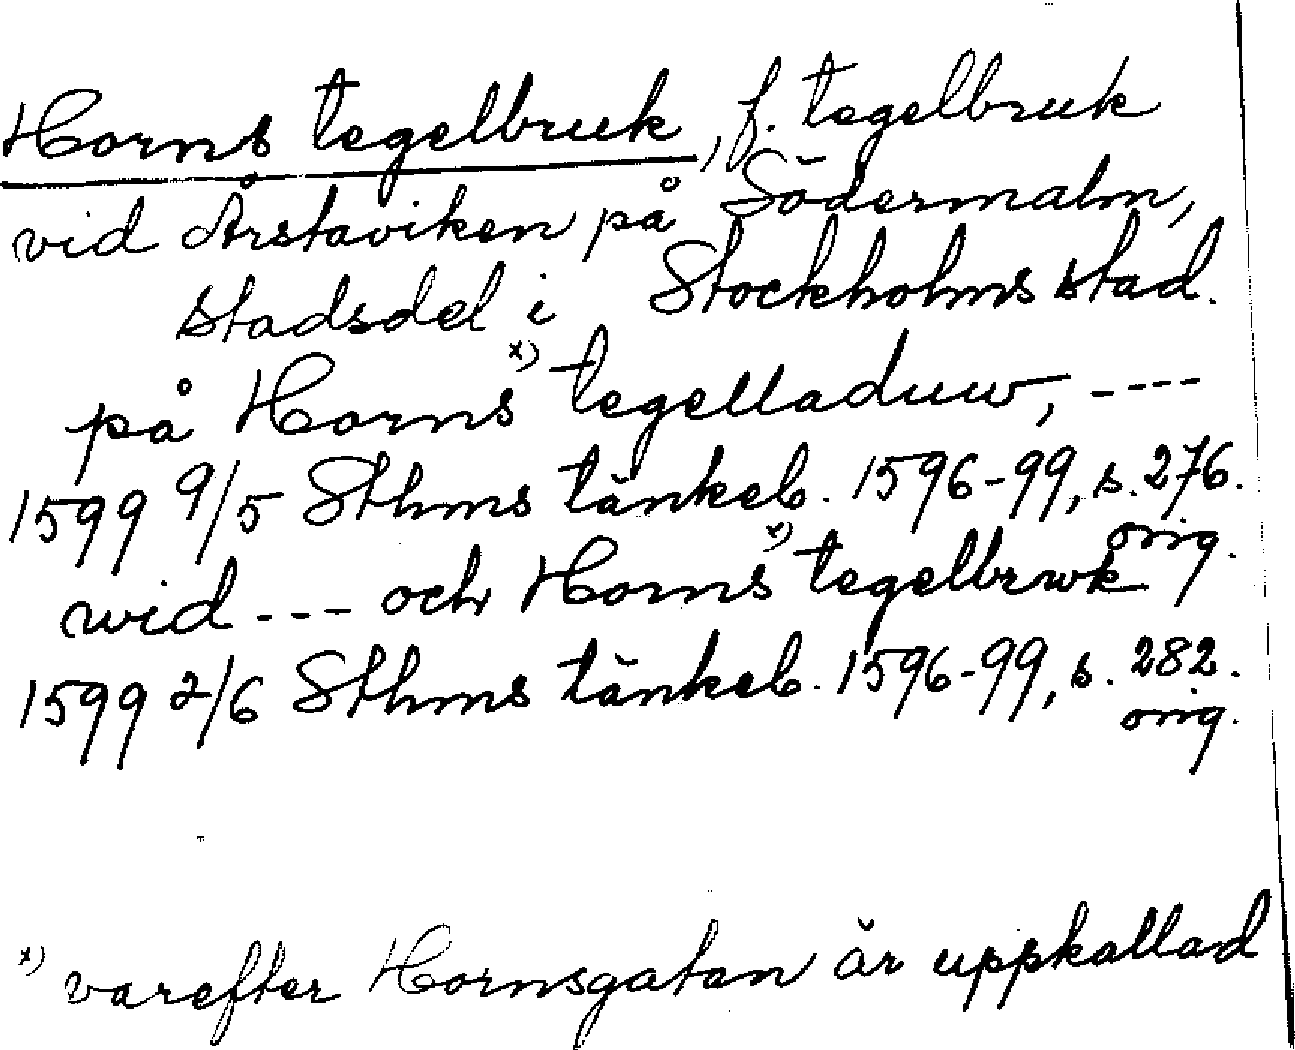 Horns tegelbruk, f. tegelbruk
vid Årstaviken på Södermalm,
stadsdel i Stockholms stad.
på Horns x) tegelladuw, ----
1599 9/5 Sthms tänkeb. 1596-99, s. 276.
orig.
wid --- och Horns x) tegelbrwk
1599 2/6 Sthms tänkeb. 1596-99, s. 282.
orig.
x) varefter Hornsgatan är uppkallad